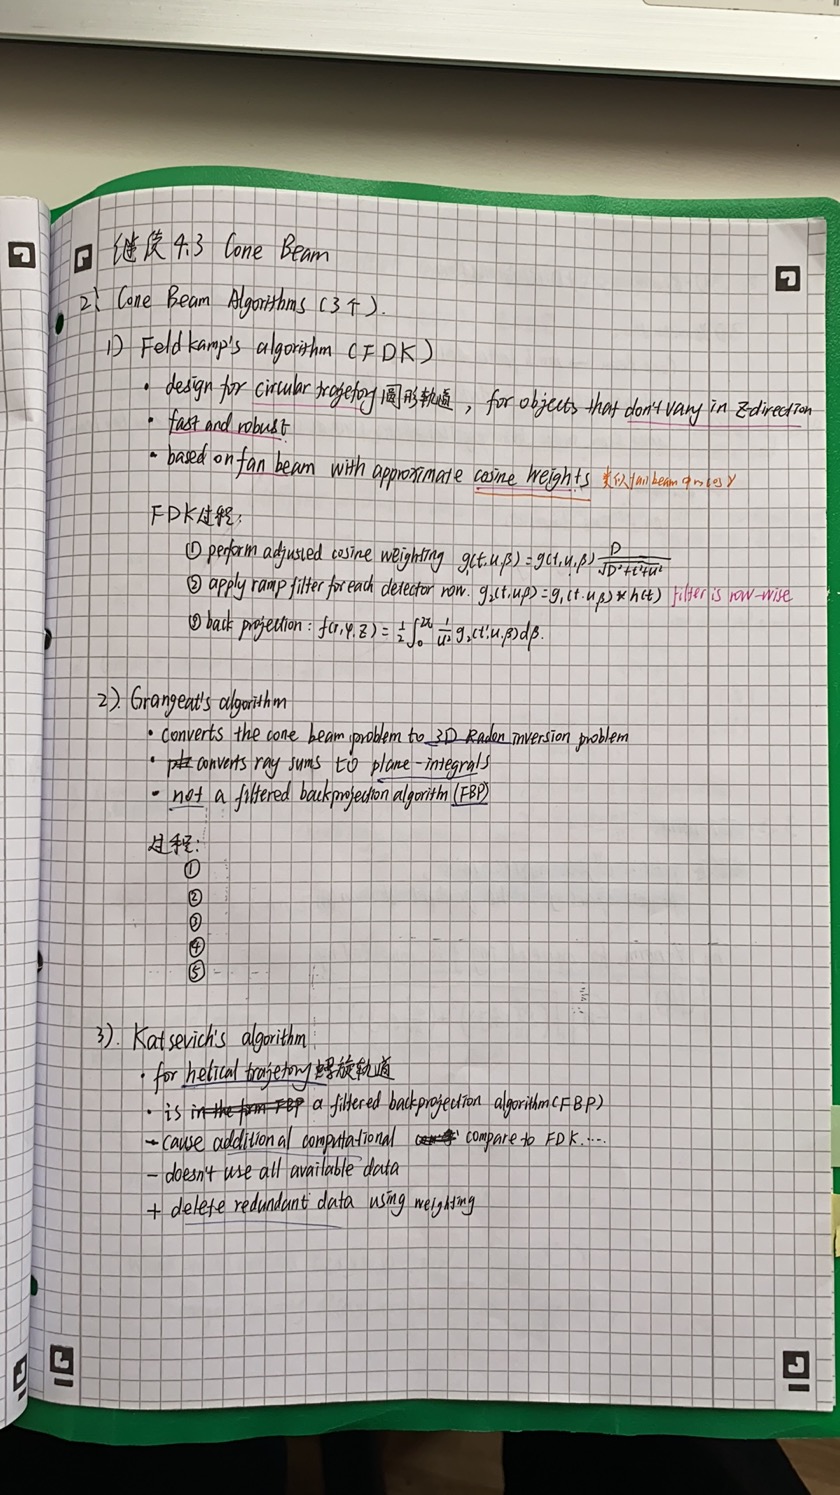 继续4.3 Cone Beam
2} Cone Beam Algorithms (3个).
1) Feldkamp's algorithm (FDK)
· design for circular trajetory 圆形轨道, for objects that don't vary in z-direction
· fast and robust
· based on fan beam with approximate cosine weights 类似fan beam 中的 cos γ
FDK过程:
① perform adjusted cosine weighting g₁(t,u,β)=g(t,u,β) D/√(D²+t²+u²)
② apply ramp filter for each detector row. g₂(t,u,β)=g₁(t,u,β)*h(t) filter is row-wise
③ back projection: f(r,φ,z)=½∫₀^2π 1/U² g₂(t',u,β)dβ.
2). Grangeat's algorithm
· converts the cone beam problem to 3D Radon inversion problem
· converts ray sums to plane-integrals
· not a filtered backprojection algorithm (FBP)
过程:
①
②
③
④
⑤
3). Katsevich's algorithm
· for helical trajetory 螺旋轨道
· is in the form FBP a filtered backprojection algorithm(FBP)
- cause additional computational compare to FDK....
- doesn't use all available data
+ delete redundant data using weighting